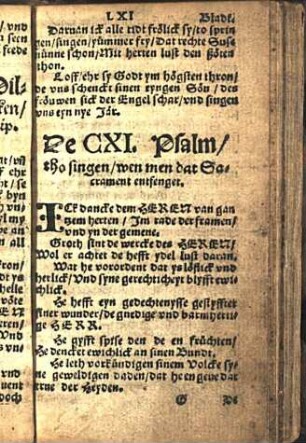 LXI Bladt.
Daruan ick alle tidt frölick sy/to sprin
gen/singen/yummer frey/Dat rechte Suse
ninne schon/Mit herten lust den söten
thon.
Loff/ehr sy Godt ym högsten thron/
de vns schenckt sinen eyngen Sön/des
fröuwen sick der Engel schar/vnd singen
vns eyn nye Jär.
De CXI. Psalm/
tho singen/wen men dat Sa-
crament entfenget.
ICk dancke dem HEREN van gan
tzem herten/Im rade der framen/
vnd yn der gemene.
Groth sint de wercke des HEREN/
Wol er achtet de hefft ydel lust daran.
Wat he vorordent dat ys löflick vnd
herlick/Vnd syne gerechticheyt blyfft ewich-
lick.
He hefft eyn gedechtenysse gestyfftet
siner wunder/de gnedige vnd barmherti-
ge HERR.
He gyfft spise den de en früchten/
He dencket ewichlick an sinen Bundt.
He leth vorkündigen sinem Volcke sy-
ne geweldigen daden/dat he en geue dat
erue der Heyden.
G De